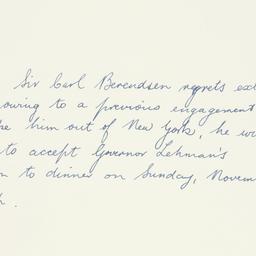 Sir Carl Berendsen regrets ext
owing to a previous engagement
ke him out of New York, he wo
to accept Governor Lehman's
n to dinner on Sunday, Novem
h.